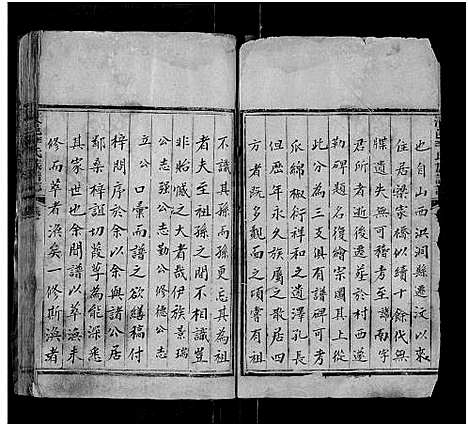 也自山西洪洞縣遷汶以來
住居梁家橋似續十餘代無
牒遺失無可稽考至譜南字
君所者逝後遷葬於村西遂
勒碑題名復繪宗圖其上從
此分為三支俱有譜碑可考
瓜綿椒衍祥和之遺澤孔長
但歷年永久族屬之散居四
方者多覿面之頃常有祖
不識其孫而孫更忘其為祖
者夫至祖孫之間不相識豈
非貽慼之大者哉伊族景瑞
公志強公志勤公修公志
立公口彙而譜之欲繕稿付
梓問序於余以余與諸公居
鄰桑梓誼切葭莩為能深悉
其家世也余閱譜之萃渙未
修而萃者渙矣一修斯渙者